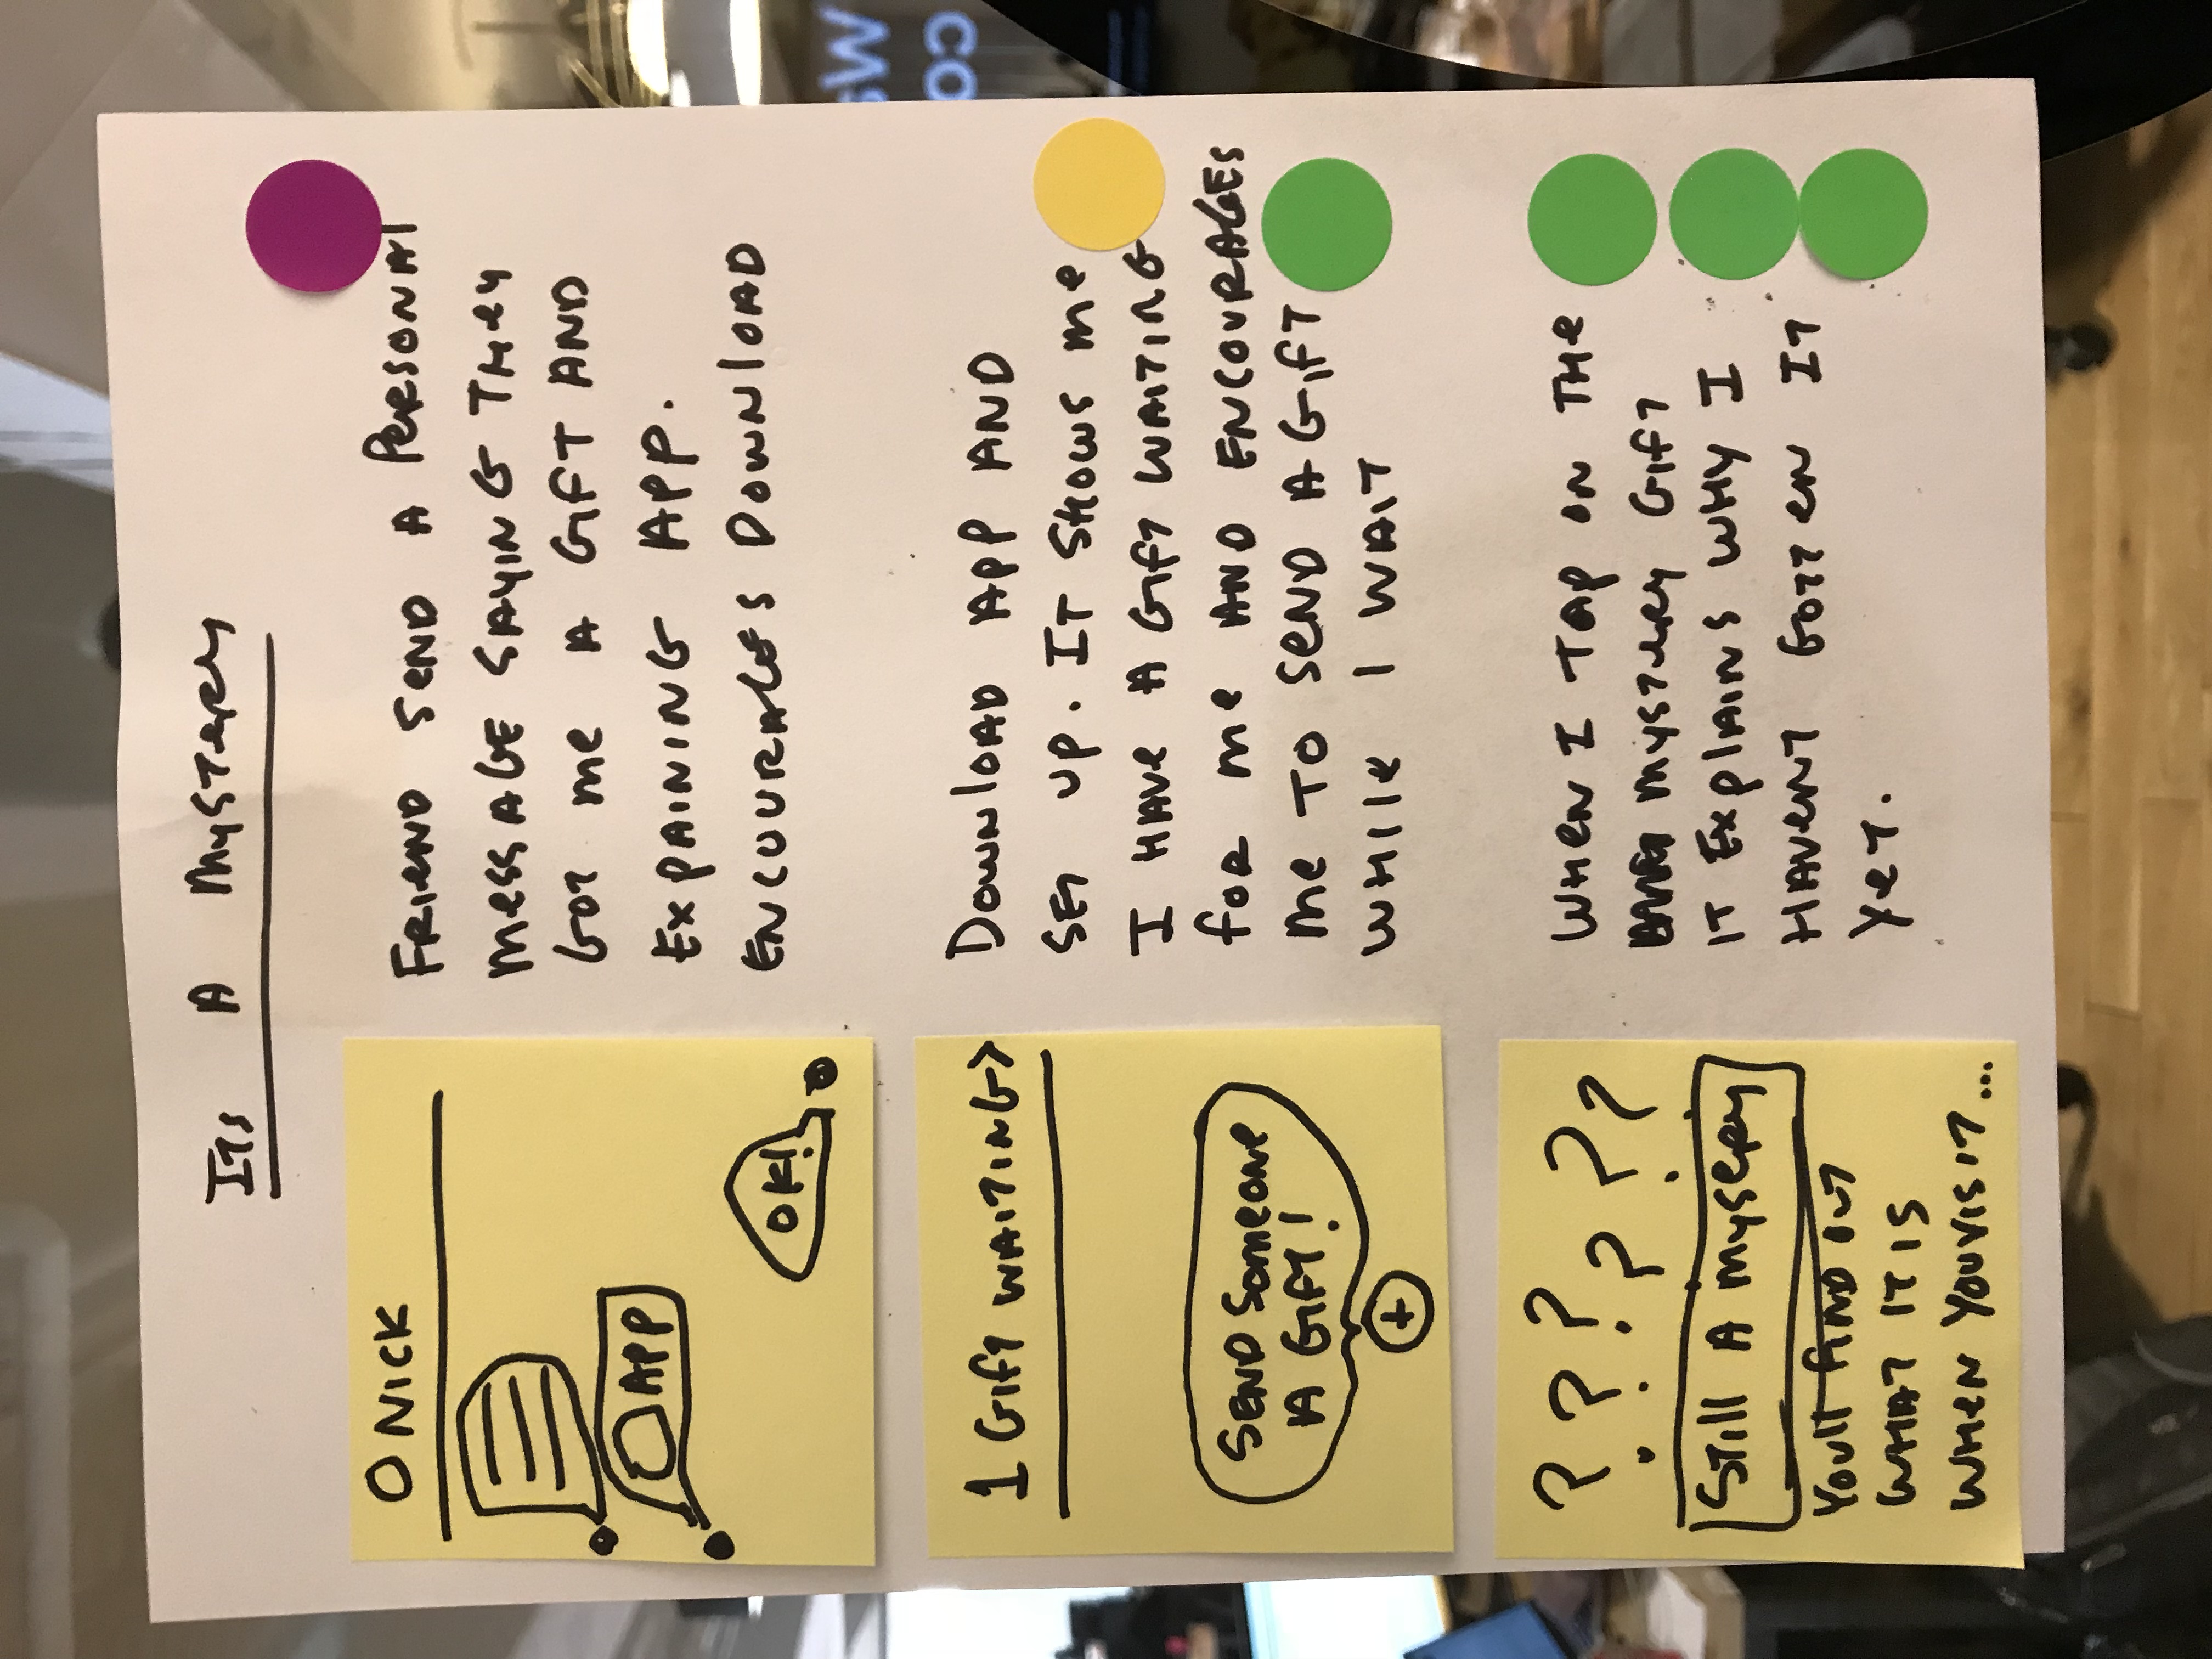 Its A Mystery
O NICK
APP
OK!
FRIEND SEND A PERSONAL
MESSAGE SAYING THEY
GOT ME A GIFT AND
EXPAINING APP.
ENCOURAGES DOWNLOAD
1 Gift WAITING>
SEND SOMEONE
A Gift!
+
DOWNLOAD APP AND
SET UP. IT SHOWS ME
I HAVE A GIFT WAITING
FOR ME AND ENCOURAGES
ME TO SEND A GIFT
WHILE I WAIT
? ? ? ? ? ?
STILL A MYSERY
YOULL FIND OUT
WHAT IT IS
WHEN YOU VISIT...
WHEN I TAP ON THE
MYSTERY GIFT
IT EXPLAINS WHY I
HAVENT GOTTEN IT
YET.